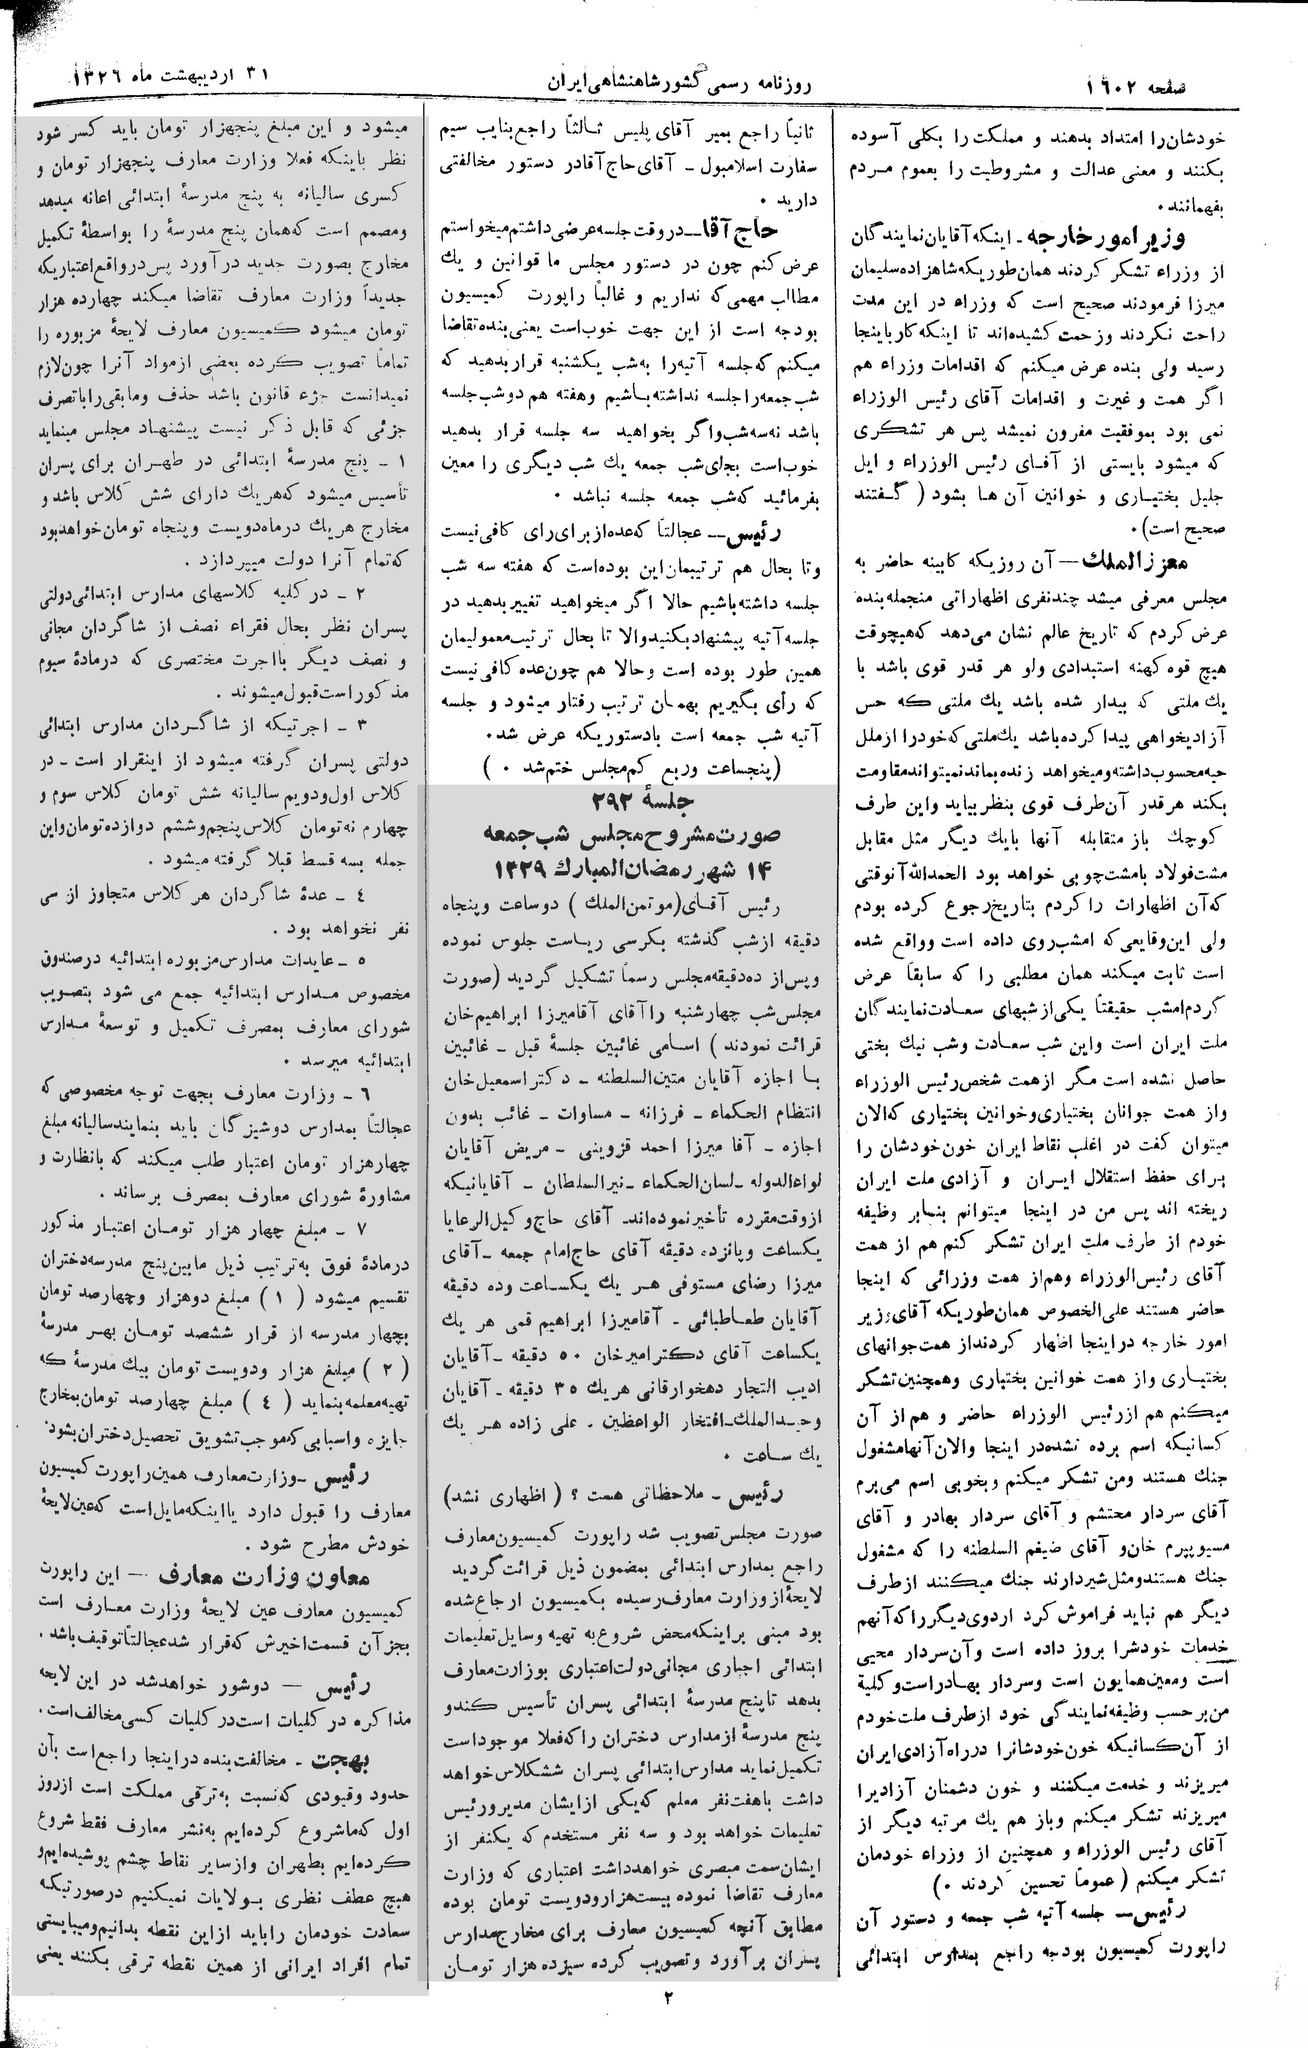 صفحه ۱۶۰۲
روزنامه رسمی کشور شاهنشاهی ایران
۳۱ اردیبهشت ماه ۱۳۲۶
خودشان را امتداد بدهند و مملکت را بکلی آسوده
بکنند و معنی عدالت و مشروطیت را بعموم مردم
بفهمانند .
وزیر امور خارجه - اینکه آقایان نمایندگان
از وزراء تشکر کردند همان طوریکه شاهزاده سلیمان
میرزا فرمودند صحیح است که وزراء در این مدت
راحت نکردند و زحمت کشیده‌اند تا اینکه کار باینجا
رسید ولی بنده عرض میکنم که اقدامات وزراء هم
اگر همت و غیرت و اقدامات آقای رئیس الوزراء
نمی بود بموفقیت مقرون نمیشد پس هر تشکری
که میشود بایستی از آقای رئیس الوزراء و ایل
جلیل بختیاری و خوانین آن ها بشود ( گفتند
صحیح است) .
معزز الملک — آن روزیکه کابینه حاضر به
مجلس معرفی میشد چند نفری اظهاراتی منجمله بنده
عرض کردم که تاریخ عالم نشان می‌دهد که هیچوقت
هیچ قوه کهنه استبدادی ولو هر قدر قوی باشد با
یک ملتی که بیدار شده باشد یک ملتی که حس
آزادیخواهی پیدا کرده باشد یک ملتی که خود را از ملل
حیه محسوب داشته و میخواهد زنده بماند نمیتواند مقاومت
بکند هر قدر آن طرف قوی بنظر بیاید و این طرف
کوچک باز متقابله آنها با یک دیگر مثل مقابل
مشت فولاد با مشت چوبی خواهد بود الحمدالله آنوقتی
که آن اظهارات را کردم بتاریخ رجوع کرده بودم
ولی این وقایعی که امشب روی داده است و واقع شده
است ثابت میکند همان مطلبی را که سابقاً عرض
کردم امشب حقیقتاً یکی از شبهای سعادت نمایندگان
ملت ایران است و این شب سعادت و شب نیک بختی
حاصل نشده است مگر از همت شخص رئیس الوزراء
و از همت جوانان بختیاری و خوانین بختیاری که الان
میتوان گفت در اغلب نقاط ایران خون خودشان را
برای حفظ استقلال ایران و آزادی ملت ایران
ریخته اند پس من در اینجا میتوانم بنمابر وظیفه
خودم از طرف ملت ایران تشکر کنم هم از همت
آقای رئیس الوزراء و هم از همت وزرائی که اینجا
حاضر هستند علی الخصوص همان طوریکه آقای وزیر
امور خارجه در اینجا اظهار کردند از همت جوانهای
بختیاری و از همت خوانین بختیاری و همچنین تشکر
میکنم هم از رئیس الوزراء حاضر و هم از آن
کسانیکه اسم برده نشده در اینجا و الان آنها مشغول
جنک هستند و من تشکر میکنم و بخوبی اسم می‌برم
آقای سردار محتشم و آقای سردار بهادر و آقای
مسیو پیرم خان و آقای ضیغم السلطنه را که مشغول
جنک هستند و مثل شیر دارند جنک میکنند از طرف
دیگر هم نباید فراموش کرد اردوی دیگر را که آنهم
خدمات خودشرا بروز داده است و آن سردار محیی
است و معین همایون است و سردار بهادر است و کلیة
من بر حسب وظیفه نمایندگی خود از طرف ملت خودم
از آن کسانیکه خون خودشانرا در راه آزادی ایران
میریزند و خدمت میکنند و خون دشمنان آزادیرا
میریزند تشکر میکنم و باز هم یک مرتبه دیگر از
آقای رئیس الوزراء و همچنین از وزراء خودمان
تشکر میکنم ( عموماً تحسین کردند . )
رئیس — جلسه آتیه شب جمعه و دستور آن
راپورت کمیسیون بودجه راجع بمدارس ابتدائی
ثانیاً راجع بمیر آقای پلیس ثالثاً راجع بنایب سیم
سفارت اسلامبول - آقای حاج آقا در دستور مخالفتی
دارید .
حاج آقا — در وقت جلسه عرضی داشتم میخواستم
عرض کنم چون در دستور مجلس ما قوانین و یک
مطالب مهمی که نداریم و غالباً راپورت کمیسیون
بودجه است از این جهت خوب است یعنی بنده تقاضا
میکنم که جلسه آتیه را به شب یکشنبه قرار بدهید که
شب جمعه را جلسه نداشته باشیم و هفته هم دو شب جلسه
باشد نه سه شب و اگر بخواهید سه جلسه قرار بدهید
خوب است بجای شب جمعه یک شب دیگری را معین
بفرمائید که شب جمعه جلسه نباشد .
رئیس — عجالتاً که عده از برای رای کافی نیست
و تا بحال هم ترتیبمان این بوده است که هفته سه شب
جلسه داشته باشیم حالا اگر میخواهید تغییر بدهید در
جلسه آتیه پیشنهاد بکنید والا تا بحال ترتیب معمولیمان
همین طور بوده است و حالا هم چون عده کافی نیست
که رأی بگیریم بهمان ترتیب رفتار میشود و جلسه
آتیه شب جمعه است با دستوریکه عرض شد .
(پنجساعت و ربع کم مجلس ختم شد . )
جلسهٔ ۲۹۲
صورت مشروح مجلس شب جمعه
۱۴ شهر رمضان المبارک ۱۳۲۹
رئیس آقای (موتمن الملک ) دو ساعت و پنجاه
دقیقه از شب گذشته بکرسی ریاست جلوس نموده
و پس از ده دقیقه مجلس رسماً تشکیل گردید (صورت
مجلس شب چهارشنبه را آقای آقا میرزا ابراهیم خان
قرائت نمودند ) اسامی غائبین جلسهٔ قبل - غائبین
با اجازه آقایان متین السلطنه - دکتر اسمعیل خان
انتظام الحکماء - فرزانه - مساوات - غائب بدون
اجازه - آقا میرزا احمد قزوینی - مریض آقایان
لواءالدوله - لسان الحکماء - نیر السلطان - آقایانیکه
از وقت مقرره تأخیر نموده‌اند- آقای حاج وکیل الرعایا
یکساعت و پانزده دقیقه آقای حاج امام جمعه - آقای
میرزا رضای مستوفی هر یک یکساعت و ده دقیقه
آقایان طباطبائی - آقا میرزا ابراهیم قمی هر یک
یکساعت آقای دکتر امیر خان ۵۰ دقیقه - آقایان
ادیب التجار دهخوارقانی هر یک ۳۵ دقیقه - آقایان
وحید الملک - افتخار الواعظین . علی زاده هر یک
یک ساعت .
رئیس - ملاحظاتی هست ؟ ( اظهاری نشد)
صورت مجلس تصویب شد راپورت کمیسیون معارف
راجع بمدارس ابتدائی بمضمون ذیل قرائت گردید
لایحهٔ از وزارت معارف رسیده بکمیسیون ارجاع شده
بود مبنی بر اینکه محض شروع به تهیه وسایل تعلیمات
ابتدائی اجباری مجانی دولت اعتباری بوزارت معارف
بدهد تا پنج مدرسهٔ ابتدائی پسران تأسیس کند و
پنج مدرسهٔ از مدارس دختران را که فعلا موجود است
تکمیل نماید مدارس ابتدائی پسران ششکلاس خواهد
داشت با هفت نفر معلم که یکی از ایشان مدیر و رئیس
تعلیمات خواهد بود و سه نفر مستخدم که یکنفر از
ایشان سمت مبصری خواهد داشت اعتباری که وزارت
معارف تقاضا نموده بیست هزار و دویست تومان بوده
مطابق آنچه کمیسیون معارف برای مخارج مدارس
پسران برآورد و تصویب کرده سیزده هزار تومان
میشود و این مبلغ پنجهزار تومان باید کسر شود
نظر باینکه فعلا وزارت معارف پنجهزار تومان و
کسری سالیانه به پنج مدرسهٔ ابتدائی اعانه میدهد
و مصمم است که همان پنج مدرسهٔ را بواسطهٔ تکمیل
مخارج بصورت جدید در آورد پس در واقع اعتباریکه
جدیداً وزارت معارف تقاضا میکند چهارده هزار
تومان میشود کمیسیون معارف لایحهٔ مزبوره را
تماماً تصویب کرده بعضی از مواد آنرا چون لازم
نمیدانست جزء قانون باشد حذف و مابقی را با تصرف
جزئی که قابل ذکر نیست پیشنهاد مجلس مینماید
۱ - پنج مدرسهٔ ابتدائی در طهران برای پسران
تأسیس میشود که هر یک دارای شش کلاس باشد و
مخارج هر یک در ماه دویست و پنجاه تومان خواهد بود
که تمام آنرا دولت میپردازد .
۲ - در کلیه کلاسهای مدارس ابتدائی دولتی
پسران نظر بحال فقراء نصف از شاگردان مجانی
و نصف دیگر با اجرت مختصری که در مادهٔ سیوم
مذکور است قبول میشوند .
۳ - اجرتیکه از شاگردان مدارس ابتدائی
دولتی پسران گرفته میشود از اینقرار است - در
کلاس اول و دویم سالیانه شش تومان کلاس سوم و
چهارم نه تومان کلاس پنجم و ششم دوازده تومان و این
جمله بسه قسط قبلا گرفته میشود .
٤ - عدهٔ شاگردان هر کلاس متجاوز از سی
نفر نخواهد بود .
۵ - عایدات مدارس مزبوره ابتدائیه در صندوق
مخصوص مدارس ابتدائیه جمع می شود بتصویب
شورای معارف بمصرف تکمیل و توسعهٔ مدارس
ابتدائیه میرسد .
٦ - وزارت معارف بجهت توجه مخصوصی که
عجالتاً بمدارس دوشیزگان باید بنمایند سالیانه مبلغ
چهار هزار تومان اعتبار طلب میکند که با نظارت و
مشاورهٔ شورای معارف بمصرف برساند .
۷ - مبلغ چهار هزار تومان اعتبار مذکور
در مادهٔ فوق به ترتیب ذیل ما بین پنج مدرسه دختران
تقسیم میشود ( ۱ ) مبلغ دو هزار و چهارصد تومان
بچهار مدرسه از قرار ششصد تومان بهر مدرسهٔ
( ۲ ) مبلغ هزار و دویست تومان بیک مدرسهٔ که
تهیه معلمه بنماید ( ٤ ) مبلغ چهارصد تومان بمخارج
جایزه و اسبابی که موجب تشویق تحصیل دختران بشود
رئیس - وزارت معارف همین راپورت کمیسیون
معارف را قبول دارد یا اینکه مایل است که عین لایحهٔ
خودش مطرح شود .
معاون وزارت معارف — این راپورت
کمیسیون معارف عین لایحهٔ وزارت معارف است
بجز آن قسمت اخیرش که قرار شد عجالتاً توقیف باشد .
رئیس — دو شور خواهد شد در این لایحه
مذاکره در کلیات است در کلیات کسی مخالف است .
بهجت - مخالفت بنده در اینجا راجع است بآن
حدود و قیودی که نسبت به ترقی مملکت است از روز
اول که ما شروع کرده‌ایم به نشر معارف فقط شروع
کرده‌ایم بطهران و از سایر نقاط چشم پوشیده‌ایم و
هیچ عطف نظری بولایات نمیکنیم در صورتیکه
سعادت خودمان را باید از این نقطه بدانیم و میبایستی
تمام افراد ایرانی از همین نقطه ترقی بکنند یعنی
۲